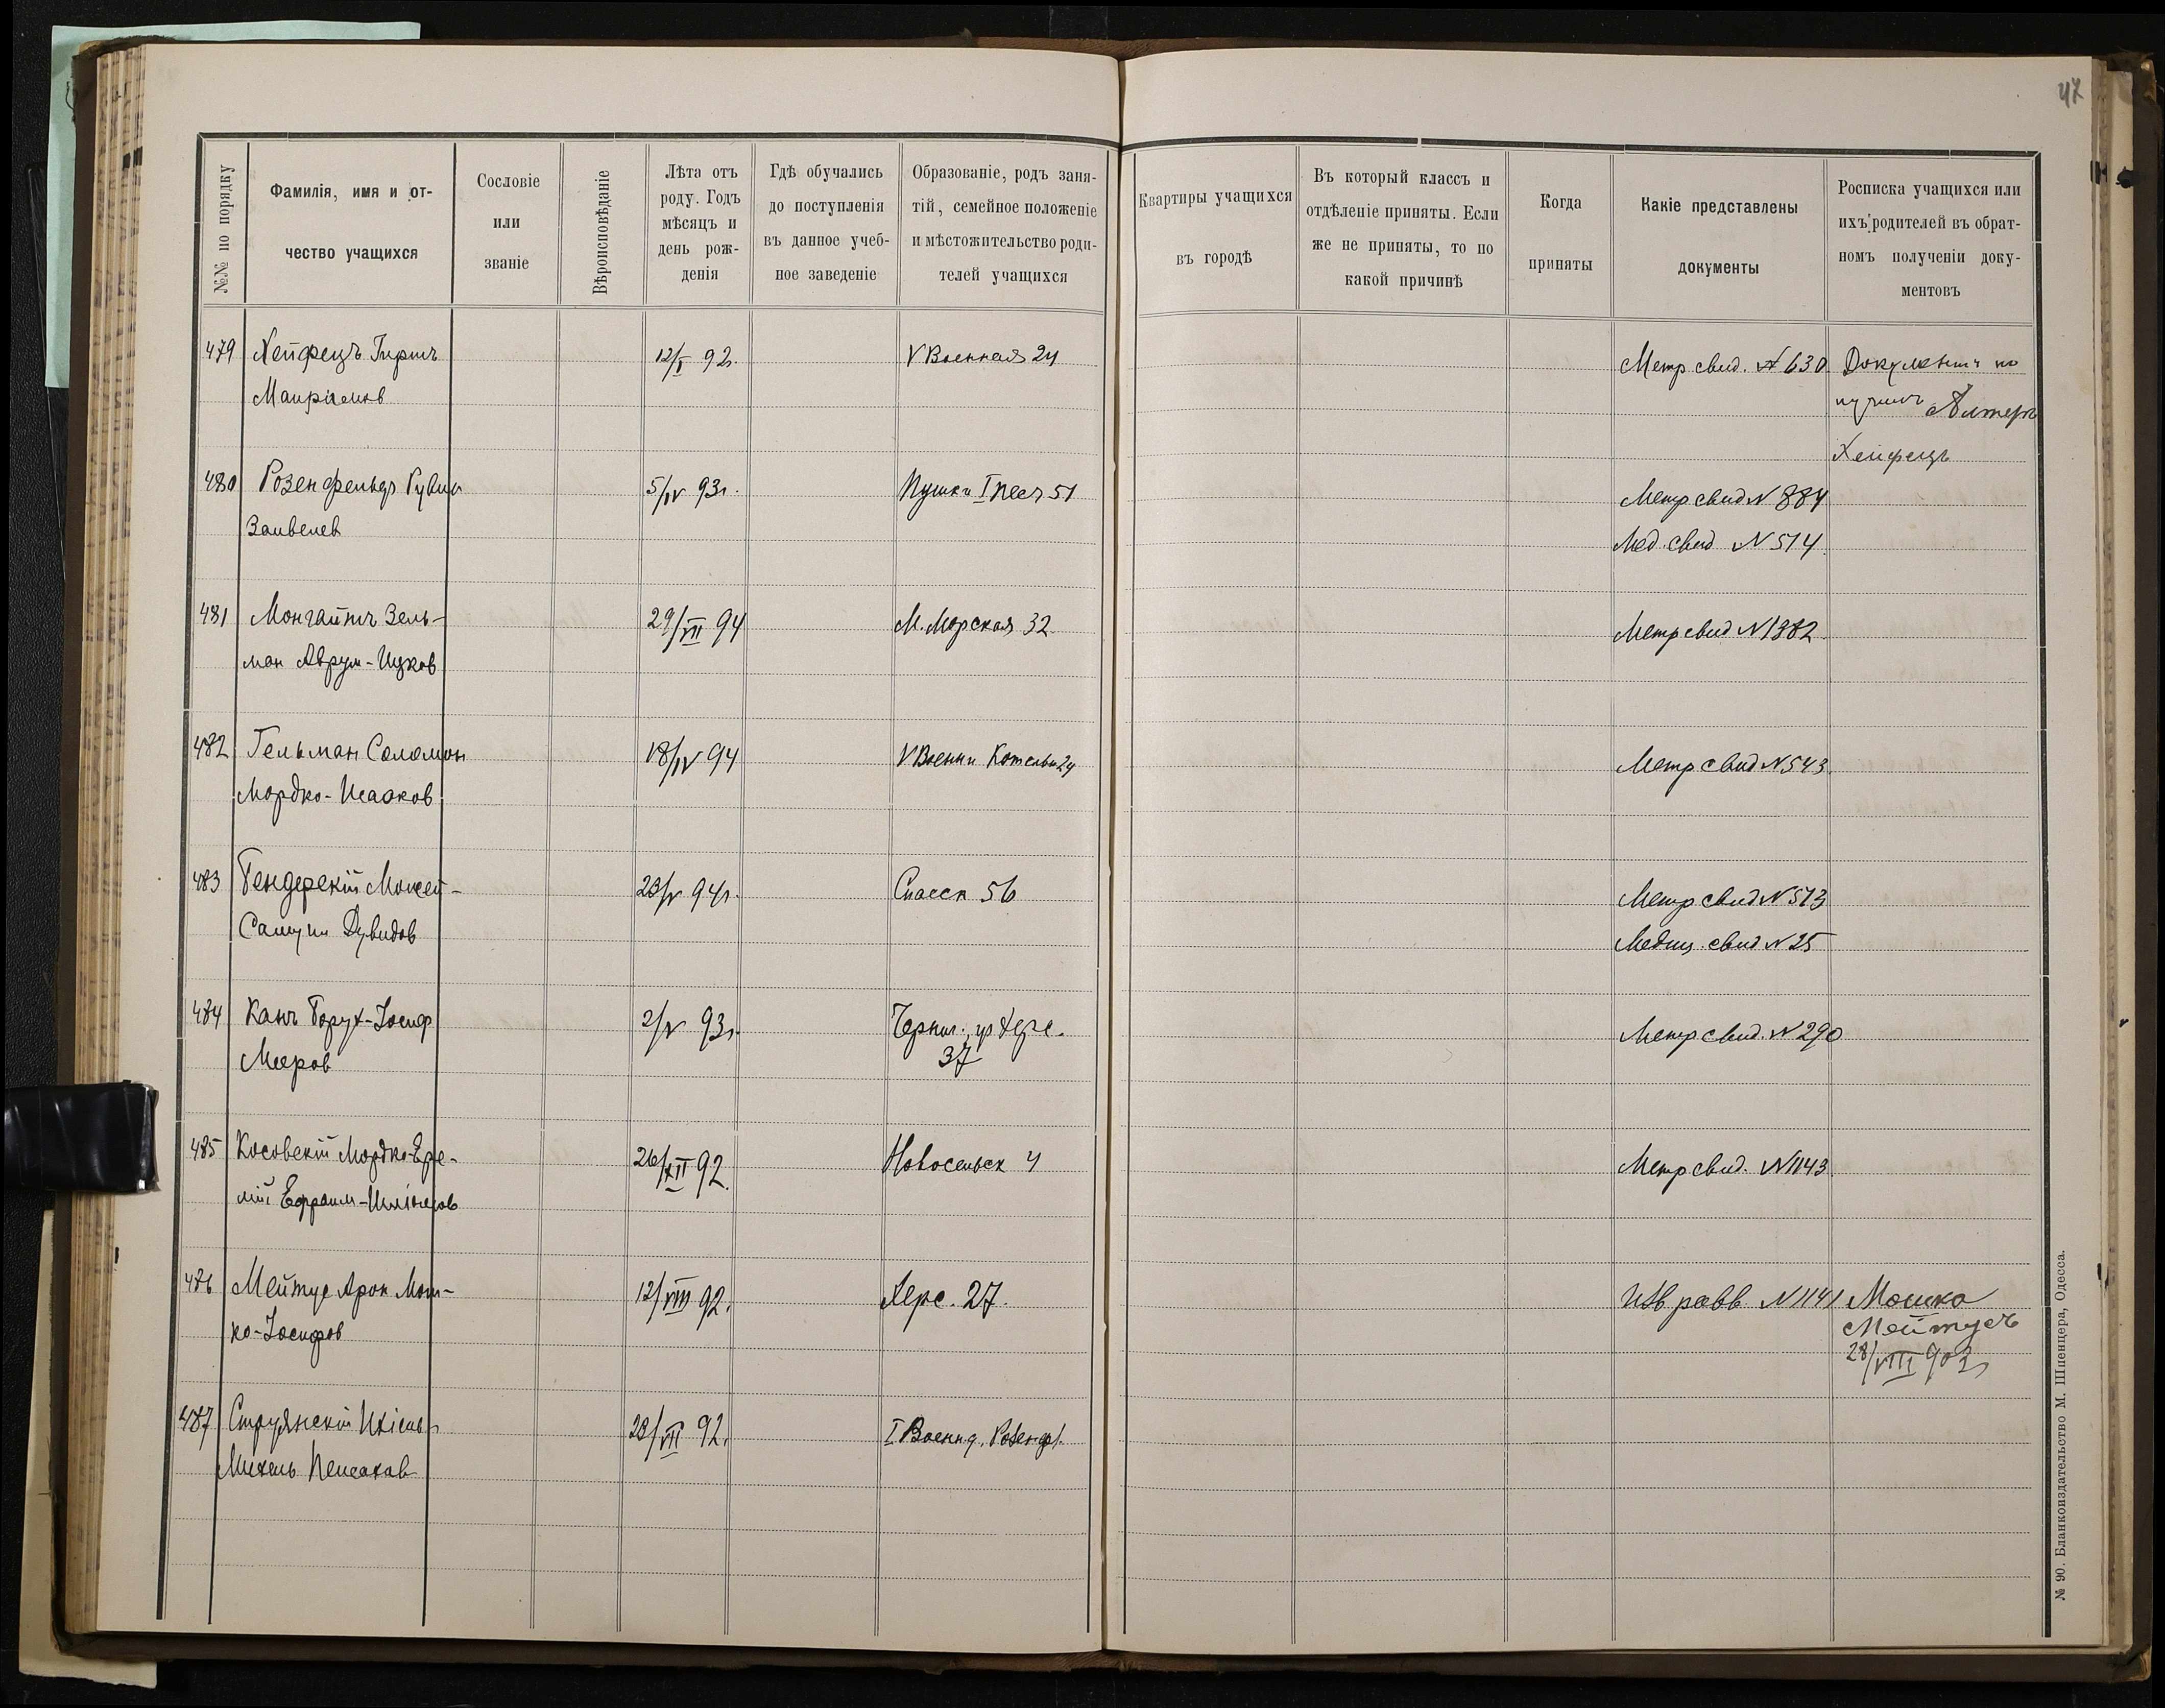 47
№№ по порядку
Фамилія, имя и от-
чество учащихся
Сословіе
или
званіе
Вѣроисповѣданіе
Лѣта отъ
роду. Годъ
мѣсяцъ и
день рож-
денія
Гдѣ обучались
до поступленія
въ данное учеб-
ное заведеніе
Образованіе, родъ заня-
тій, семейное положеніе
и мѣстожительство роди-
телей учащихся
Квартиры учащихся
въ городѣ
Въ который классъ и
отдѣленіе приняты. Если
же не приняты, то по
какой причинѣ
Когда
приняты
Какіе представлены
документы
Росписка учащихся или
ихъ родителей въ обрат-
номъ полученіи доку-
ментовъ
479 Хейфецъ Гиршъ 12/I 92. V Военная 24 Метр свид. № 630 Документ по
лучилъ Алтеръ
Хейфецъ
480 Розенфельдъ Рувин 5/IV 93г. Пушкин 51 Метр свид N 884
Зайвелев Мед. свид N 514.
481 Монгайтъ Зель- 29/VII 94 М. Морская 32 Метр свид N 1382
ман Аврум-Ицков
482 Гельман Соломон 18/IV 94 V Военн Котельн 24 Метр свид N 543
Мордко-Исааков
483 Бендерскій Мойсей- 23/V 94г. Спасск 56 Метр свид N 513
Самуил Дувидов Медиц. свид N 25
484 Канъ Борух-Іосиф 2/V 93г. Черниг. Херс. Метр свид. N 290
Мееров 37
485 Косовскій Мордко-Ере- 26/XII 92. Новосельск 4 Метр свид. N 1143
мій Ефраим-
486 Мейтус Арон Мош- 12/VIII 92. Херс. 27. равв. N 1141 Мошко
ко-Іосифов Мейтусъ
28/VIII 903г
487 Ихіель 28/VII 92. I Военн д. Розенф.
Михель Пейсахов
№ 90. Бланкоиздательство М. Шпенцера, Одесса.